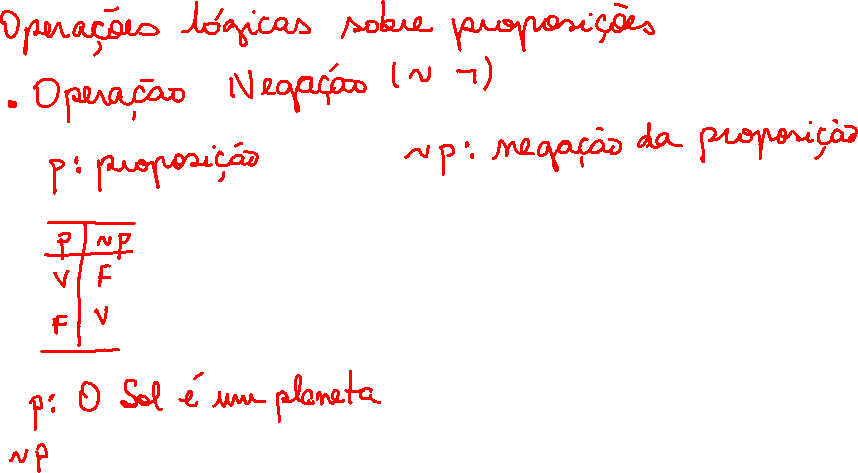 Operações lógicas sobre proposições
. Operação Negação (~ ¬)
p: proposição ~p: negação da proposição
p ~p
V F
F V
p: O Sol é um planeta
~p